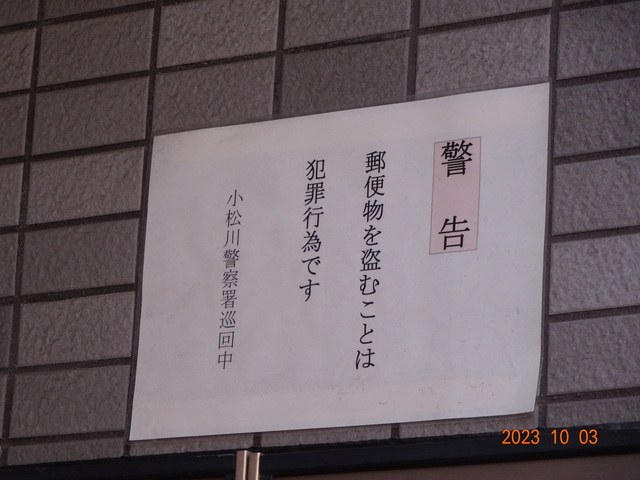 警告
郵便物を盗むことは
犯罪行為です
小松川警察署巡回中
2023 10 03